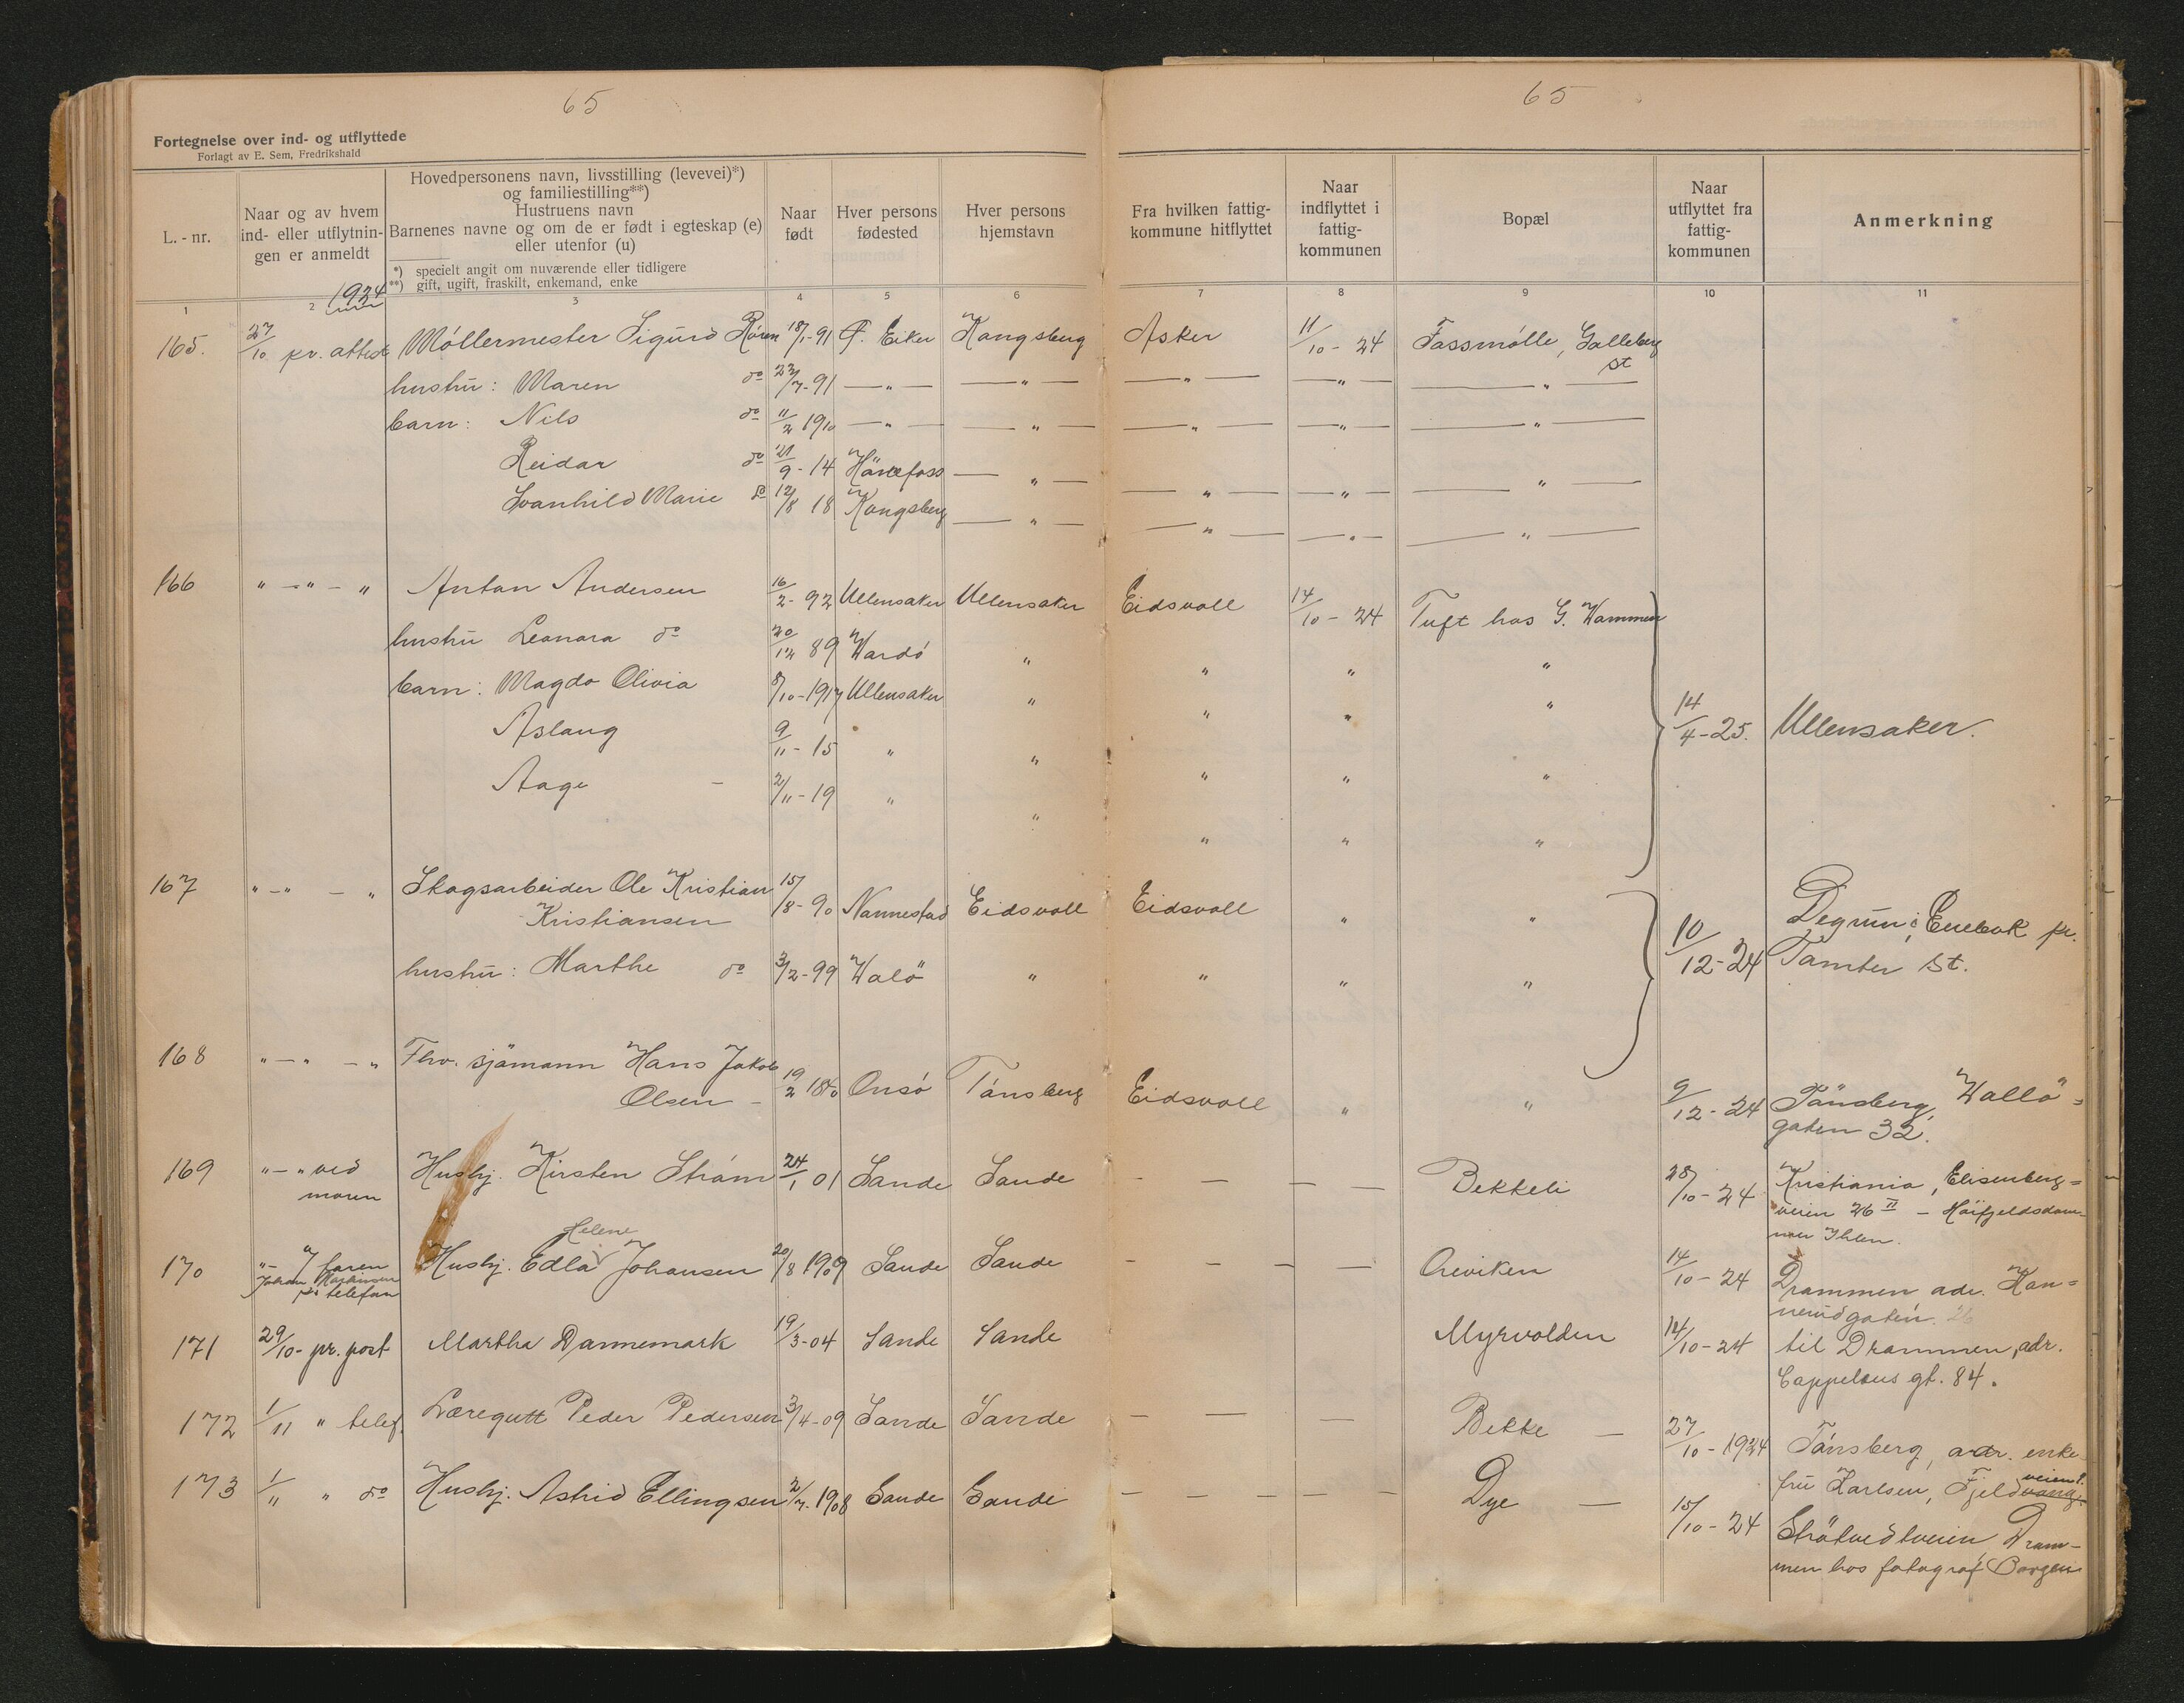 65
65
Fortegnelse over ind- og utflyttede
Forlagt av E. Sem, Fredrikshald
L.-nr.
Naar og av hvem ind- eller utflytnin- gen er anmeldt
Hovedpersonens navn, livsstilling (levevei)*)
og familiestilling**)
Hustruens navn
Barnenes navne og om de er født i egteskap (e)
eller utenfor (u)
*) specielt angit om nuværende eller tidligere
**) gift, ugift, fraskilt, enkemand, enke
Naar født
Hver persons fødested
Hver persons hjemstavn
Fra hvilken fattig- kommune hitflyttet
Naar indflyttet i fattig- kommunen
Bopæl
Naar utflyttet fra fattig- kommunen
Anmerkning
1 2 3 4 5 6 7 8 9 10 11
1924
165. 27/10 pr. attest Møllermester Sigurd Røren 18/1-91 Ø. Eiker Kongsberg Asker 11/10-24 Fossmølle, Galleberg
st
hustru: Maren do 23/7-91 — " — — " — — " — — " — — " —
barn: Nils do 11/2 1910 — " — — " — — " — — " — — " —
Reidar do 21/9-14 Hönefoss — " — — " — — " — — " —
Svanhild Marie do 12/8 18 Kongsberg — " — — " — — " — — " —
166 " — " — " Anton Andersen 16/2-92 Ullensaker Ullensaker Eidsvoll 14/10-24 Tuft hos G. Hammer
hustru Leonora do 20/12 89 Vardó " " " "
barn: Magda Olivia 8/10-1917 Ullensaker " " " " 14/4-25. Ullensaker.
Aslaug 9/11-15 " " " " "
Aage - 2/11-19 " " " " "
167 " — " — " Skogsarbeider Ole Kristian 15/8-90 Nannestad Eidsvoll Eidsvoll " " 10/12-24 Degrum i Enebak pr.
Kristiansen
hustru: Marthe do 3/2-99 Valö " " " " Tomter St.
168 " — " — " Fhv. sjömann Hans Jakob
Olsen - 19/2 1840 Onsö Tönsberg Eidsvoll " " 9/12-24 Tönsberg, Vallö=
gaten 32.
169 " — " ved Husbj. Kirsten Ström 24/1 01 Sande Sande - — — — Bekkeli 28/10-24 Kristiania, Elisenberg=
moren
veien 26 II - Höifjeldsdom-
mer Ihlen.
Helene
170 "- af faren Husbj. Edla Johansen 20/8 1909 Sande Sande - - - — Greviken 14/10-24 Drammen adr. Kon=
Johan
pr telefon
nerudgaten. 26
171 29/10- pr. post Martha Dannemark 19/3-04 Sande Sande Myrvolden 14/10-24 til Drammen, adr.
Cappelens gt. 84.
172 1/11 " telef. Læregutt Peder Pedersen 3/4-09 Sande Sande — — — — Bekke — 27/10-1924 Tönsberg, adr. enke
fru Karlsen, Fjeldvang.
veien ?.
173 1/11 " do Husbj. Astrid Ellingsen 2/7-1908 Sande Sande - — — — — Dye — 15/10-24 Strötvedtveien Dram-
men hos fotograf Borgen